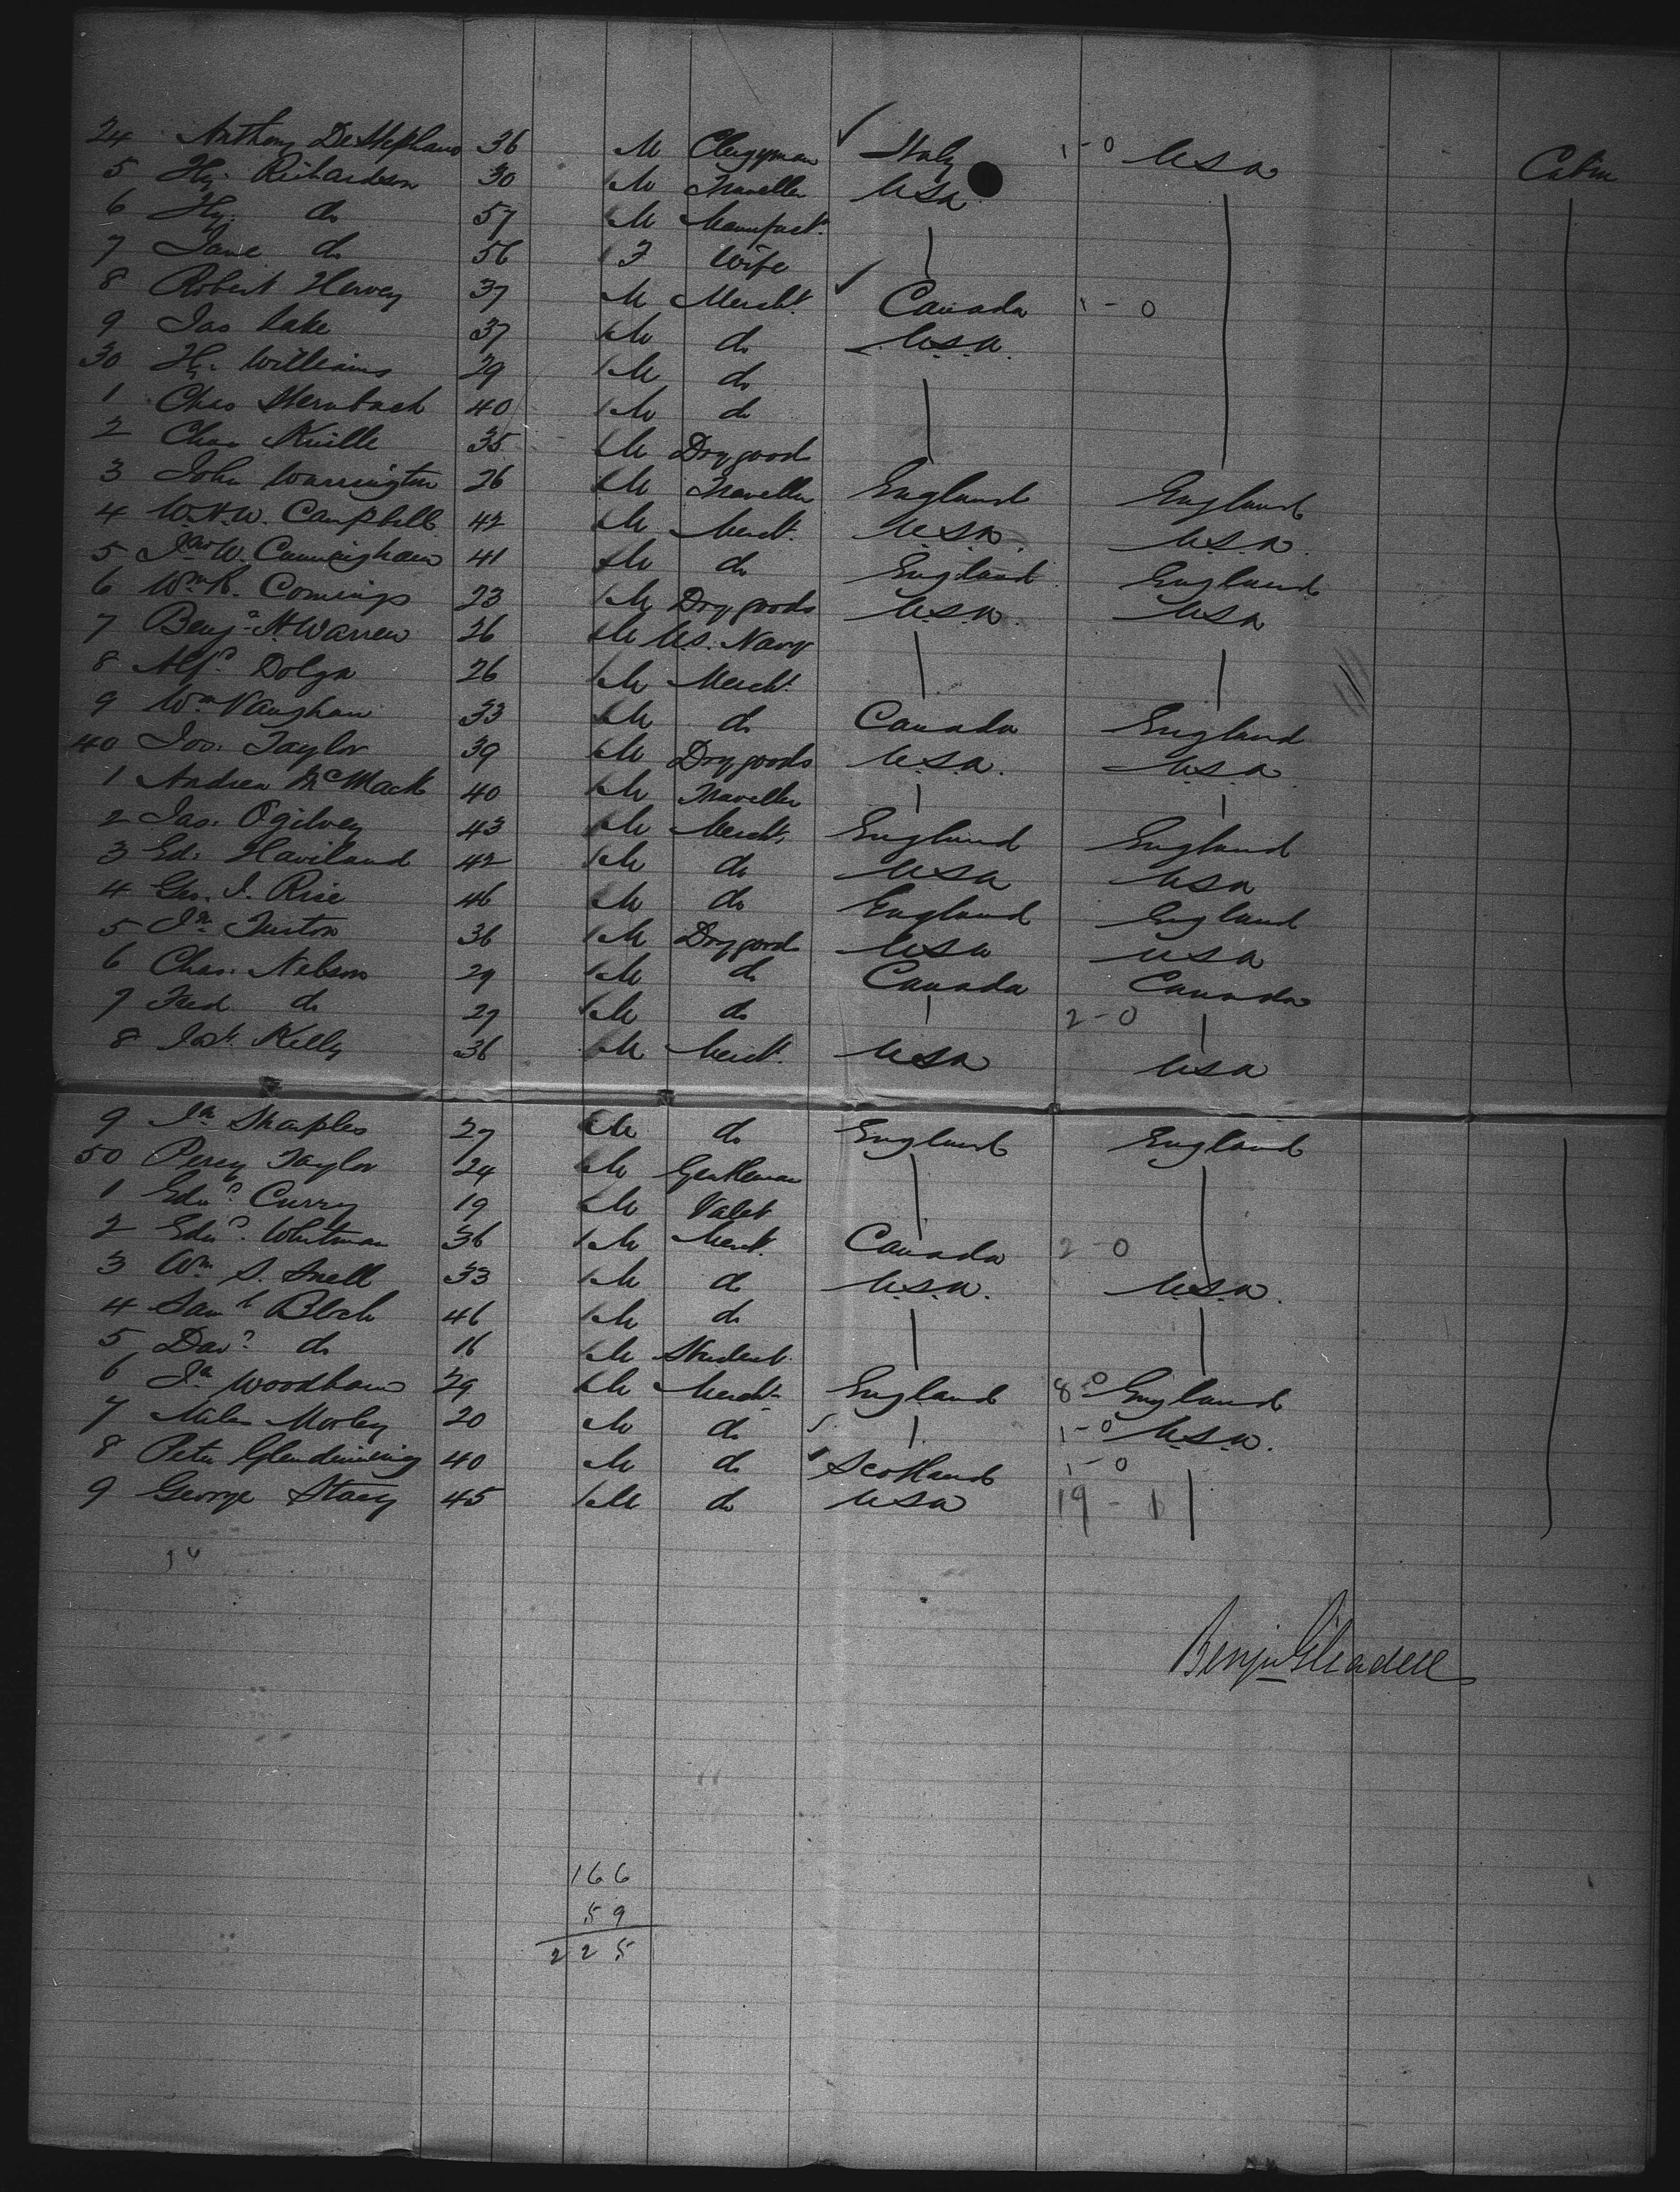 24 Anthony De Stephano 36 M Clergyman ✓ Italy 1-0 USA Cabin
5 Hy. Richardson 30 M Traveller USA
6 Hy. do 57 M Manufact.
7 Jane do 56 F Wife
8 Robert Hervey 37 M Mercht. ✓ Canada 1-0
9 Jas Lake 37 M do U.S.A.
30 Hy. Williams 29 M do
1 Chas Sternbach 40 M do
2 Chas 35 M Dry goods
3 John Warrington 26 M Traveller England England
4 W.H.W. Campbell 42 M Mercht. U.S.A. U.S.A.
5 Jas W. Cunningham 41 M do England England
6 Wm R. Comings 23 M Dry goods U.S.A. USA
7 Benj. H Warren 26 M U.S. Navy
8 Alf. Dolge 26 M Mercht.
9 Wm Vaughan 33 M do Canada England
40 Jos. Taylor 39 M Dry goods U.S.A. U.S.A
1 Andrew McMack 40 M Traveller
2 Jas. Ogilvey 43 M Mercht. England England
3 Ed. Haviland 42 M do USA USA
4 Geo. I. Rice 46 M do England England
5 Jn 36 M Dry goods USA USA
6 Chas. Nelson 29 M do Canada Canada
7 Fred do 27 M do 2-0
8 Kelly 36 M Mercht. USA USA
9 Jn Sharples 27 M do England England
50 Percy Taylor 24 M Gentleman
1 Edwd. Curry 19 M Valet
2 Edwd. Whitman 36 M Mercht. Canada 2-0
3 Wm S. Snell 33 M do U.S.A. U.S.A.
4 Saml Bloch 46 M do
5 Davd do 16 M Student
6 Jn Woodham 29 M Mercht. England 8-0 England
7 Miles Morley 20 M do 1-0 U.S.A.
8 Peter Glendinning 40 M do Scotland 1-0
9 George Stacy 45 M do USA 19-1
Benjn Gleadell
166
59
225